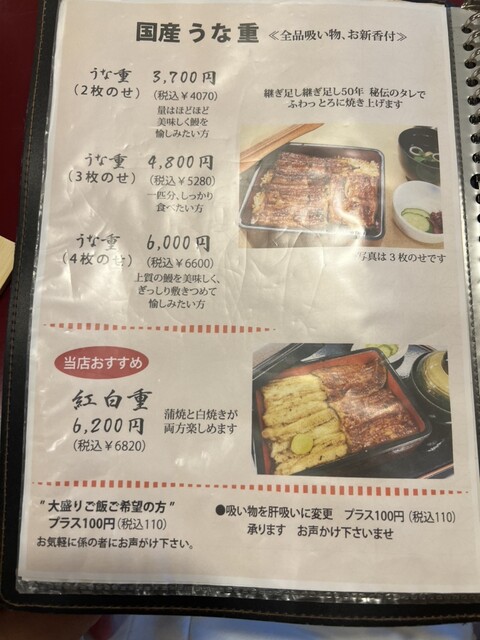 国産うな重 ≪全品吸い物、お新香付≫
うな重 3,700円
(2枚のせ) (税込￥4070)
量はほどほど
美味しく鰻を
愉しみたい方
継ぎ足し継ぎ足し50年 秘伝のタレで
ふわっとろに焼き上げます
うな重 4,800円
(3枚のせ) (税込￥5280)
一匹分、しっかり
食べたい方
うな重 6,000円
(4枚のせ) (税込￥6600)
上質の鰻を美味しく、
ぎっしり敷きつめて
愉しみたい方
写真は3枚のせです
当店おすすめ
紅白重
6,200円
(税込￥6820)
蒲焼と白焼きが
両方楽しめます
"大盛りご飯ご希望の方"
プラス100円(税込110)
お気軽に係の者にお声がけ下さい。
●吸い物を肝吸いに変更 プラス100円(税込110)
承ります お声かけ下さいませ